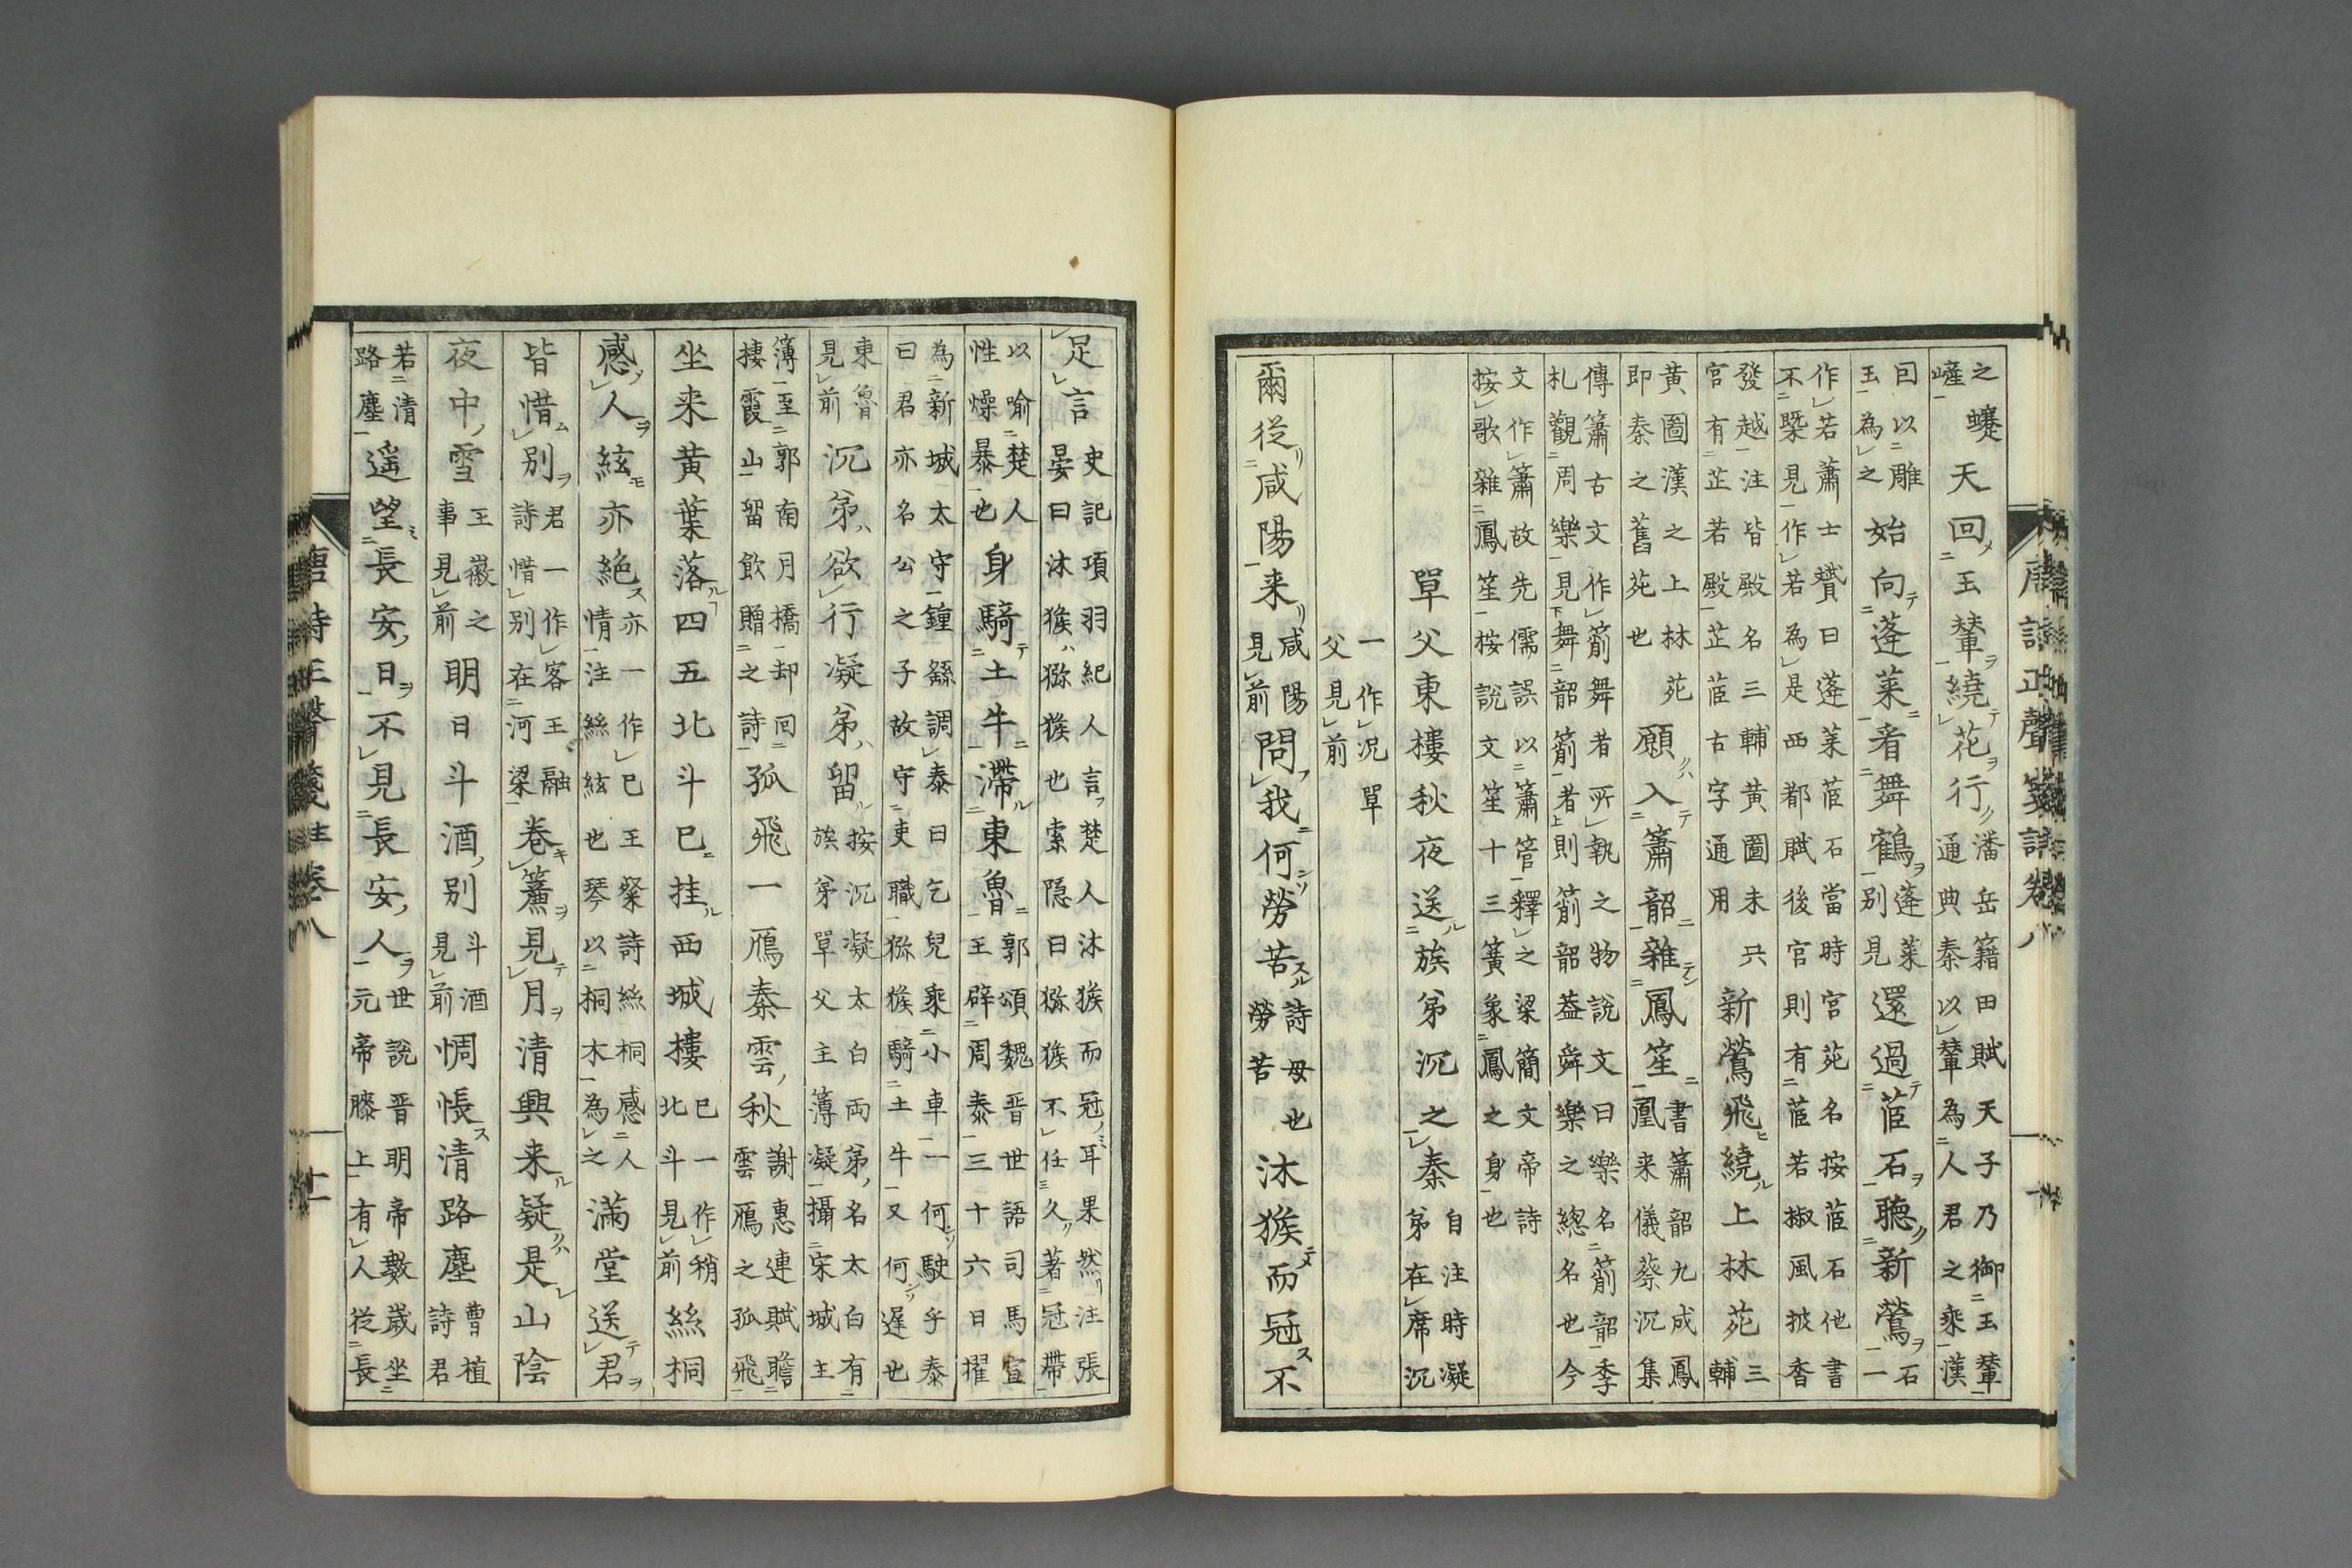 唐詩正聲箋註卷八
之
嵯
天回玉輦繞花行
潘岳籍田賦天子乃御玉輦
通典秦以輦為人君之乘漢
曰以雕
玉為之
始向蓬莱看舞鶴
蓬莱
別見
還過茝石聽新鶯
石
一
作若蕭士贇曰蓬莱茝石當時宮苑名按茝石他書
不槩見作若為是西都賦後宮則有茝若椒風披香
發越注皆殿名三輔黄圖未央
宮有芷若殿芷茝古字通用
新鶯飛繞上林苑
三
輔
黄圖漢之上林苑
即秦之舊苑也
願入簫韶雜鳳笙
書簫韶九成鳳
凰来儀蔡沉集
傳簫古文作箾舞者所執之物說文曰樂名箾韶季
札觀周樂見舞韶箾者則箾韶葢舜樂之緫名也今
文作簫故先儒誤以簫管釋之梁簡文帝詩
按歌雜鳳笙按說文笙十三簧象鳳之身也
單父東樓秋夜送族弟沉之秦
自注時凝
弟在席沉
一作况單
父見前
爾従咸陽来
咸陽
見前
問我何勞苦
詩母也
勞苦
沐猴而冠不
足言
史記項羽紀人言楚人沐猴而冠耳果然注張
晏曰沐猴猕猴也索隐曰猕猴不任久著冠帶
以喻楚人
性燥暴也
身騎土牛滯東魯
郭頌魏晋世語司馬宣
王辟周泰三十六日擢
為新城太守鍾繇調泰曰乞兒乘小車一何駛乎泰
曰君亦名公之子故守吏職猕猴騎土牛又何遲也
東魯
見前
沉弟欲行凝弟留
按沉凝太白兩弟名太白有
族弟單父主薄凝攝宋城主
簿至郭南月橋却回
棲霞山留飲贈之詩
孤飛一鴈秦雲秋
謝惠連賦瞻
雲鴈之孤飛
坐来黄葉落四五北斗已挂西城樓
已一作稍
北斗見前
絲桐
感人絃亦絕
亦一作已王粲詩絲桐感人
情注絲絃也琴以桐木為之
滿堂送君
皆惜別
君一作客王融
詩惜別在河梁
卷簾見月清興来疑是山陰
夜中雪
王徽之
事見前
明日斗酒別
斗酒
見前
惆悵清路塵
曹植
詩君
若清
路塵
遥望長安日不見長安人
世說晋明帝數歲坐
元帝膝上有人従長
唐詩正聲箋註卷八